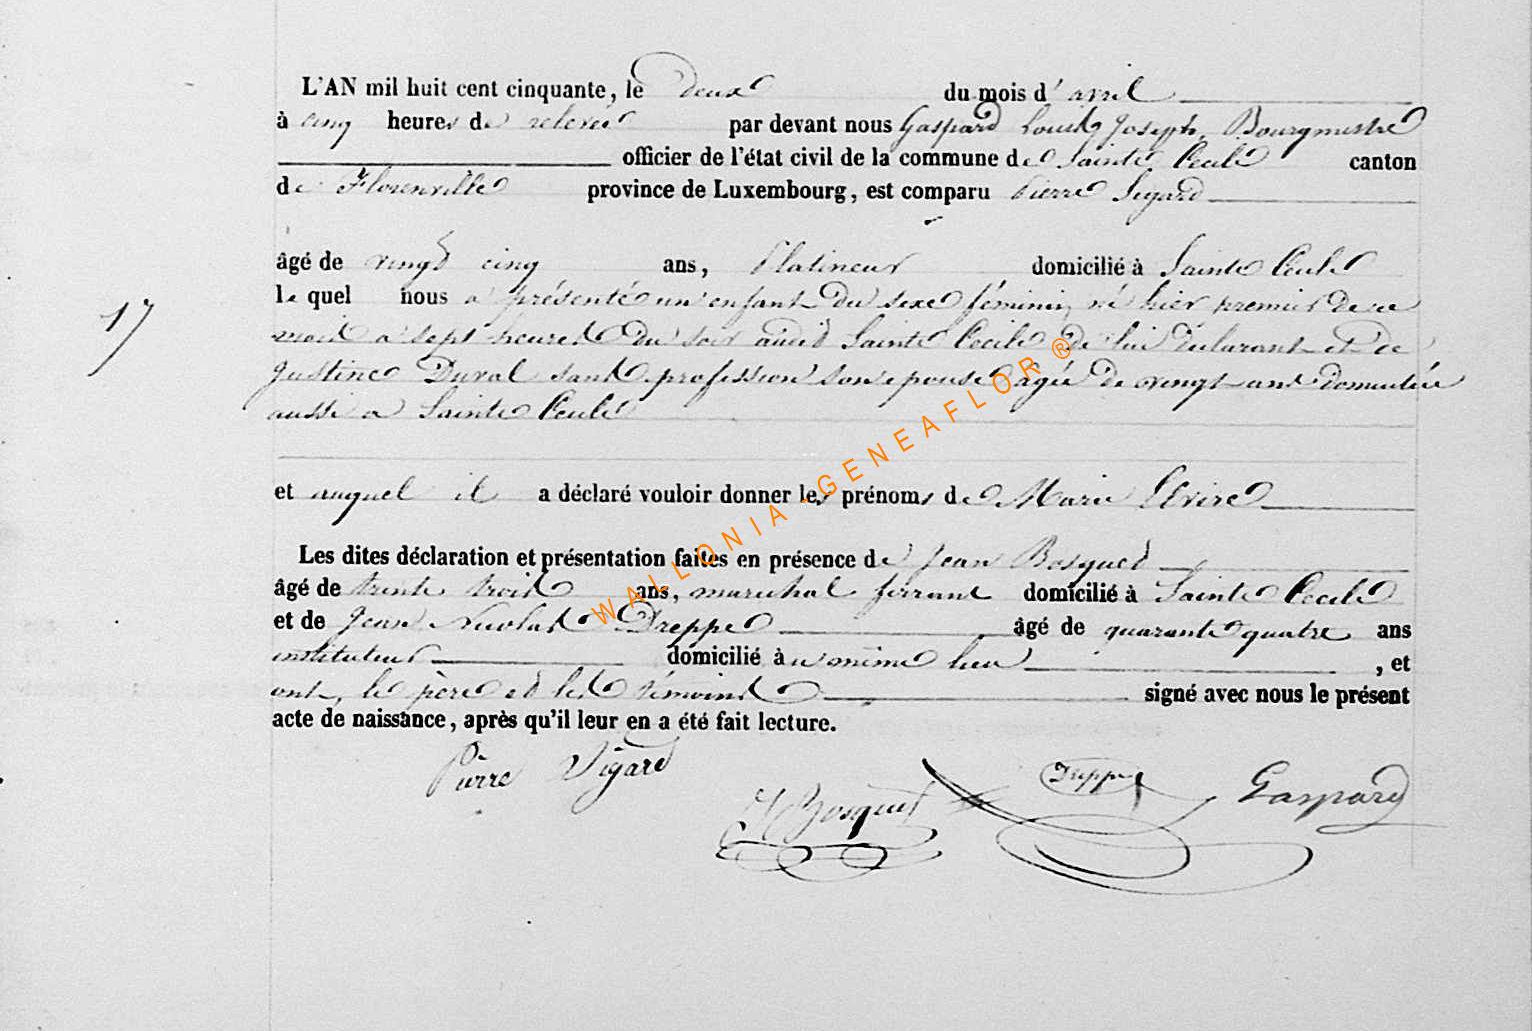 L'AN mil huit cent cinquante, le deux du mois d'avril
à cinq heures de relevée par devant nous Gaspard Louis Joseph, Bourgmestre
officier de l'état civil de la commune de Sainte Cecile canton
de Florenville province de Luxembourg, est comparu Pierre Sigard
âgé de vingt cinq ans, Platineur domicilié à Sainte Cecile
le quel nous a présenté un enfant du sexe féminin, né hier premier de ce
mois a sept heures du soir audit Sainte Cecile de lui déclarant et de
Justine Duval sans profession son epouse agée de vingt ans domiciliée
aussi a Sainte Cecile
et auquel il a déclaré vouloir donner les prénoms de Marie Elvire
Les dites déclaration et présentation faites en présence de Jean Bosquet
âgé de trente trois ans, marechal ferrant domicilié à Sainte Cecile
17
et de Jean Nicolas Dreppe âgé de quarante quatre ans
instituteur domicilié au même lieu , et
ont, le père et les témoins signé avec nous le présent
acte de naissance, après qu'il leur en a été fait lecture.
Pierre Sigard
J Bosquet
Dreppe
Gaspard
WALLONIA-GENEAFLOR®